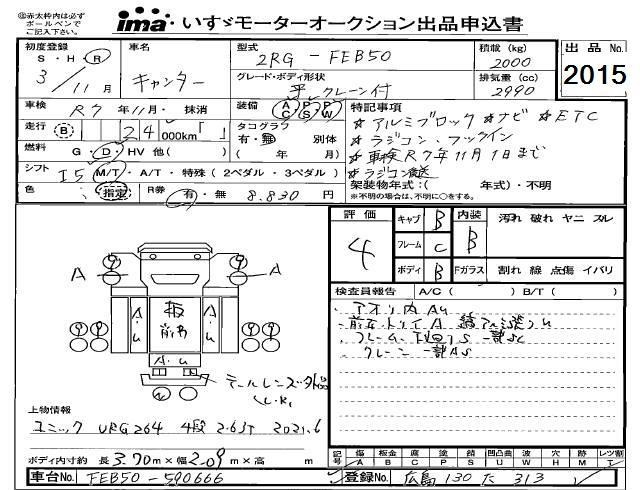 ㊟赤太枠内は必ず
ボールペンで
ご記入下さい。
ima いすゞモーターオークション出品申込書
初度登録 S・H・R 3/11月
車名 キャンター
型式 2RG-FEB50
積載(kg) 2000
グレード・ボディ形状 平 クレーン付
排気量(cc) 2990
出品No. 2015
車検 R7年11月・抹消
装備 AC PS PW
特記事項
☆アルミブロック ☆ナビ ☆ETC
☆ラジコン・フックイン
☆車検R7年11月1日まで
☆ラジコン
走行 (B) 24 000km「 」
タコグラフ 有・無 別体
( 年 月)
燃料 G・D・HV 他( )
シフト I5 M/T・A/T・特殊(2ペダル・3ペダル)
架装物年式:( 年式)・不明
※不明の場合は、不明に○をする。
色 ( 指定 ) R券 有・無 8.830円
評価 4
キャブ B
内装 B
汚れ 破れ ヤニ スレ
フレーム C
ボディ B
Fガラス 割れ 線 点傷 イバリ
検査員報告 A/C( ) B/T( )
アオリ内AU
フレーム 下回りS 一部SC
クレーン 一部AS
A A
9 9
板
前
A・U A・U
A・U
9 9 9 9
テールレンズ
L.R,
上物情報
ユニック URG264 4段 2.63T 2021.6
ボディ内寸約 長 3.70 m×幅 2.09 m×高 m
記号 傷 A 板金 B 腐 C 塗 P 錆 S 凹凸曲 U 波 W 穴 H 痛 M レツ割 T
車台No. FEB50-590666
登録No. 広島 130 た 313